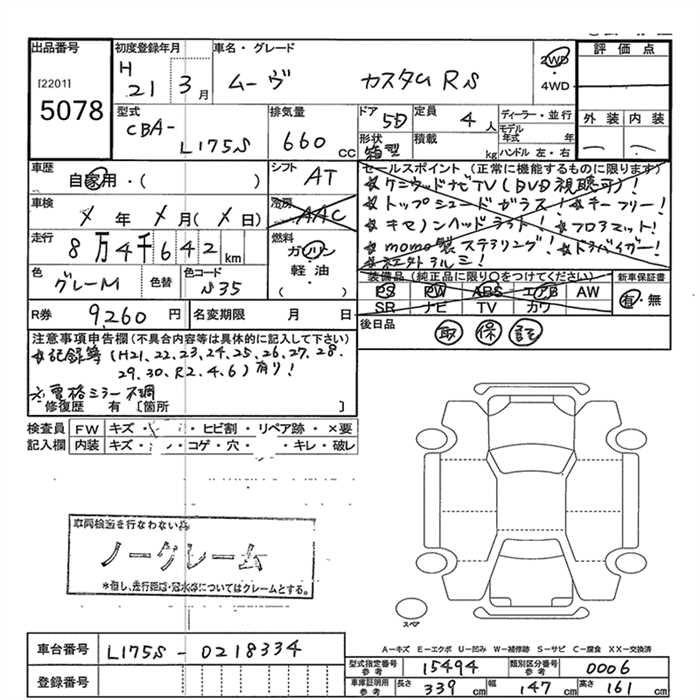 出品番号
[2201]
5078
初度登録年月
H 21 3月
車名・グレード
ムーヴ カスタムRS
2WD
・
4WD
評価点
外装 内装
型式
CBA-
L175S
排気量
660 cc
ドア 5D
定員 4人
形状 箱型
積載 kg
ディーラー・並行
モデル年式 年
ハンドル 左・右
車歴
自家用・( )
シフト AT
車検
年 月( 日)
冷房
AAC
走行
8万4千642km
燃料
ガソリン
軽油・
( )
色
グレーM
色替
色コード
S35
R券 9,260円
名変期限 月 日
セールスポイント(正常に機能するものに限ります)
☆ケンウッドナビTV(DVD視聴可)!
☆トップシェードガラス! ☆キーフリー!
☆キセノンヘッドライト! ☆フロアマット!
☆momo製ステアリング! ☆ドラバイザー!
☆社外アルミ!
装備品(純正品に限り○をつけてください)
PS PW ABS エアB AW
SR ナビ TV カワ
新車保証書
有・無
後日品
取 保 記
注意事項申告欄(不具合内容等は具体的に記入して下さい)
☆記録簿(H21.22.23.24.25.26.27.28.
29.30.R2.4.6)有り!
※電格ミラー不調
修復歴 有 [箇所 ]
検査員 FW キズ・ ・ヒビ割・リペア跡・×要
記入欄 内装 キズ・ ・コゲ・穴・ ・キレ・破レ
車両検査を行わない為
ノークレーム
*但し、走行距離・冠水等についてはクレームとする。
スペア
A-キズ E-エクボ U-凹み W-補修跡 S-サビ C-腐食 XX-交換済
車台番号 L175S-0218334
登録番号
型式指定番号 参考 15494
類別区分番号 参考 0006
車庫証明用 参考 長さ 339cm 幅 147cm 高さ 161cm